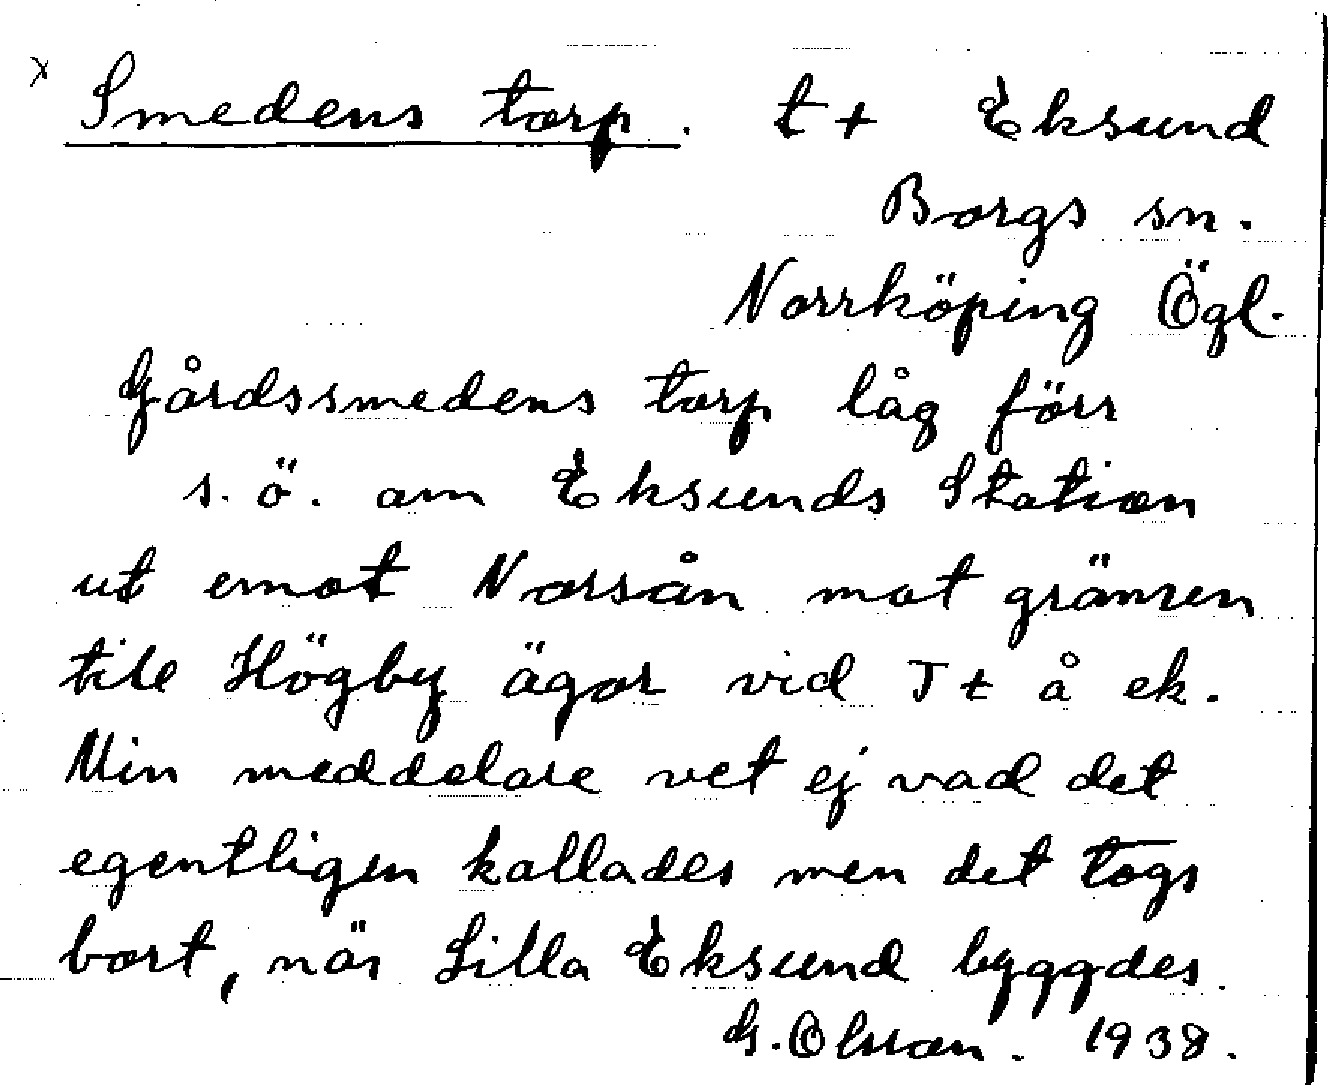 x Smedens torp. t + Eksund
Borgs sn.
Norrköping Ögl.
Gårdssmedens torp låg förr
s. ö. om Eksunds Station
ut emot Norsån mot gränsen
till Högby ägor vid T t å ek.
Min meddelare vet ej vad det
egentligen kallades men det togs
bort, när Lilla Eksund byggdes.
G. Olsson. 1938.